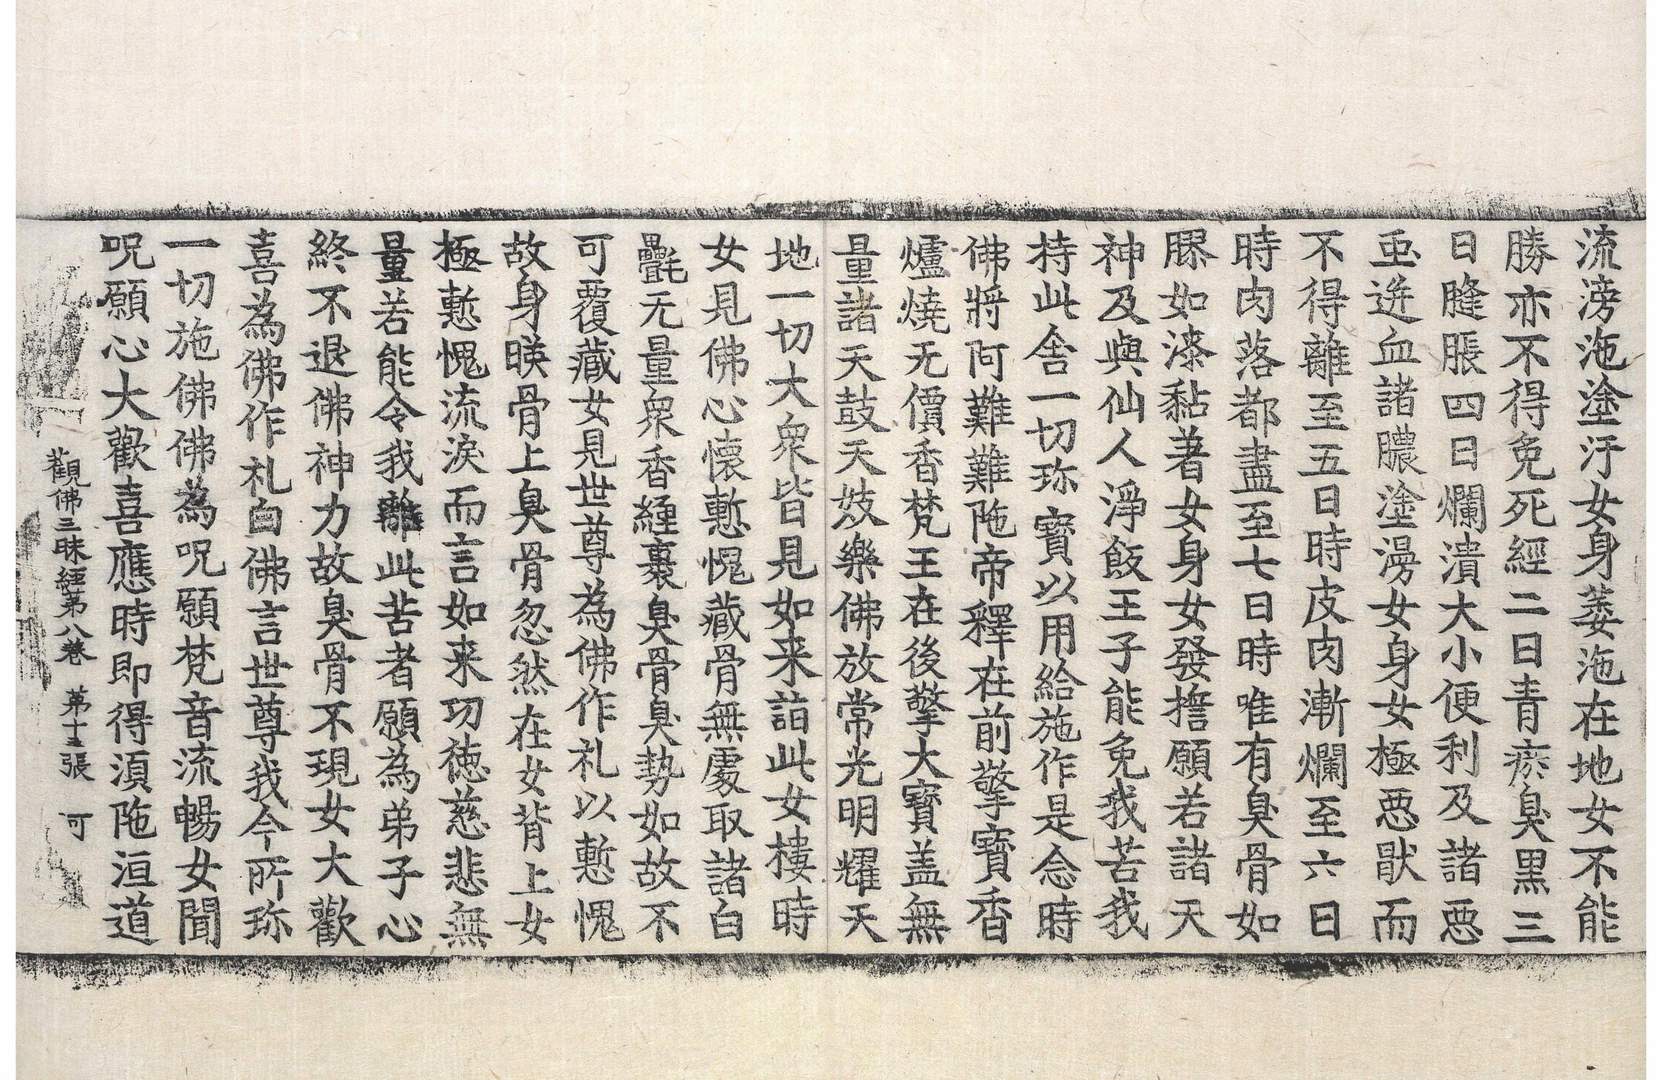 流滂沲塗汙女身萎沲在地女不能
勝亦不得免死經二日青瘀臭黑三
日膖脹四日爛潰大小便利及諸惡
虫迸血諸膿塗漫女身女極惡猒而
不得離至五日時皮肉漸爛至六日
時肉落都盡至七日時唯有臭骨如
膠如漆黏著女身女發擔願若諸天
神及與仙人淨飯王子能免我苦我
持此舍一切珎寶以用給施作是念時
佛將阿難難陁帝釋在前擎寶香
爐燒无價香梵王在後擎大寶盖無
量諸天鼓天妓樂佛放常光明耀天
地一切大衆皆見如来詣此女樓時
女見佛心懷慙愧藏骨無處取諸白
㲲无量衆香纏裹臭骨臭勢如故不
可覆藏女見世尊為佛作礼以慙愧
故身暎骨上臭骨忽然在女背上女
極慙愧流淚而言如来功徳慈悲無
量若能令我離此苦者願為弟子心
終不退佛神力故臭骨不現女大歡
喜為佛作礼白佛言世尊我今所珎
一切施佛佛為呪願梵音流暢女聞
呪願心大歡喜應時即得湏陁洹道
觀佛三昧經第八卷 第十五張 可